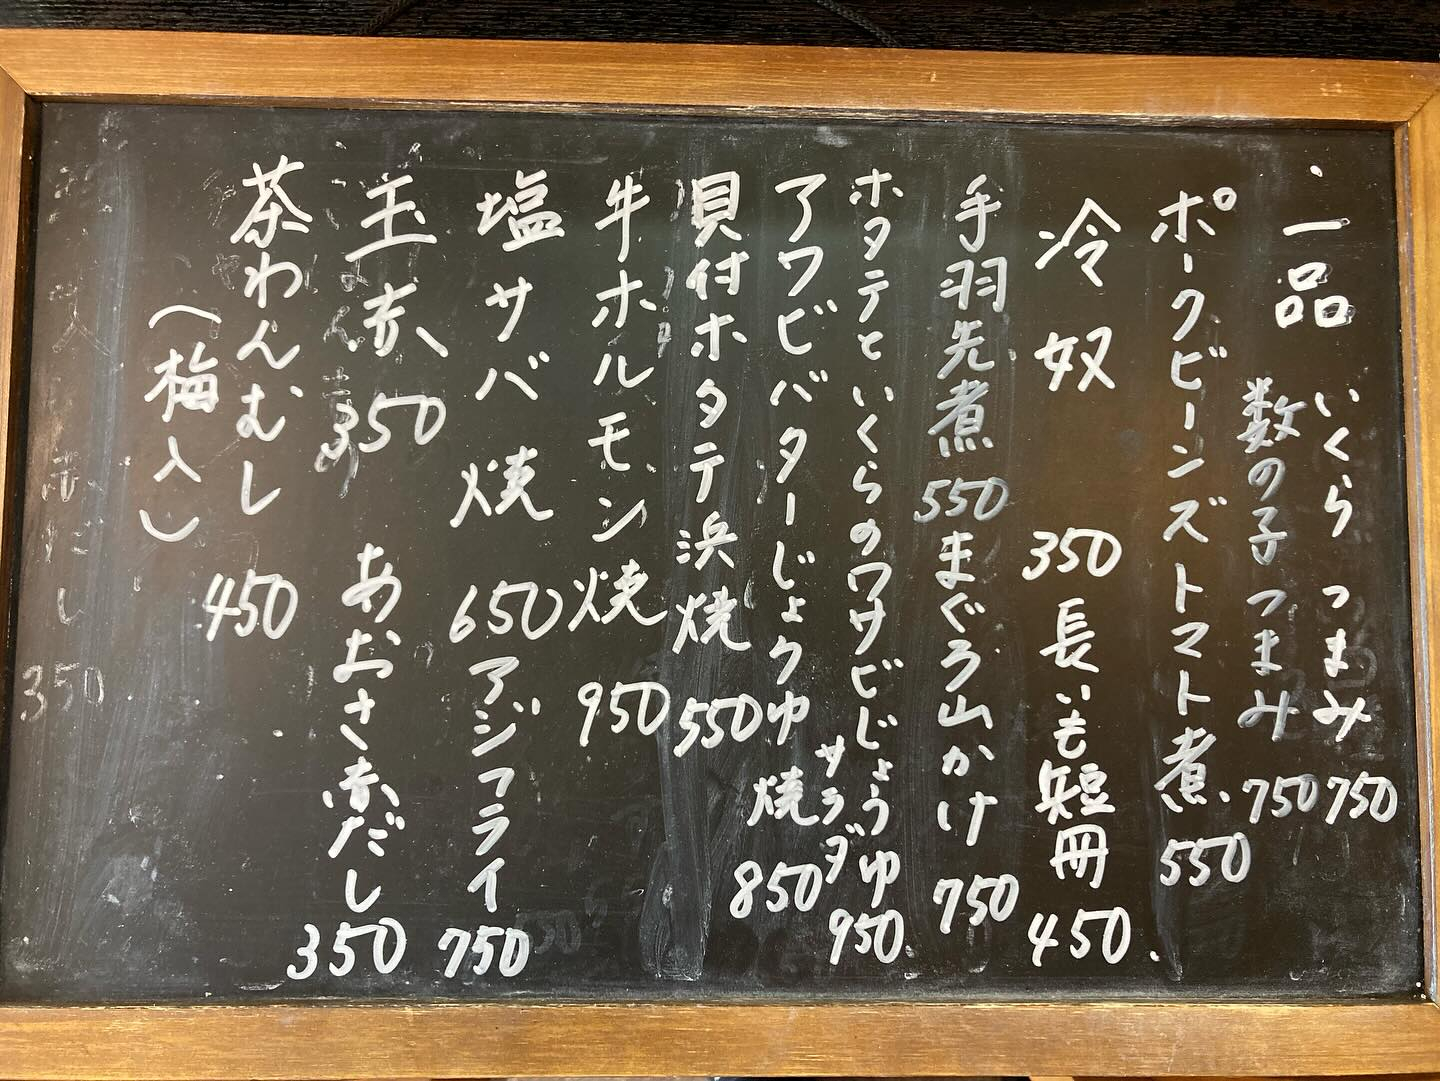 一品 いくら つまみ 750
数の子 つまみ 750
ポークビーンズトマト煮 550
冷奴 350 長いも短冊 450
手羽先煮 550 まぐろ山かけ 750
ホタテといくらのワサビじょうゆ サラダ 950
アワビバターじょウゆ焼 850
貝付ホタテ浜焼 550
牛ホルモン焼 950
塩サバ焼 650 アジフライ 750
玉赤 350 あおさ赤だし 350
茶わんむし 450
(梅入)
350